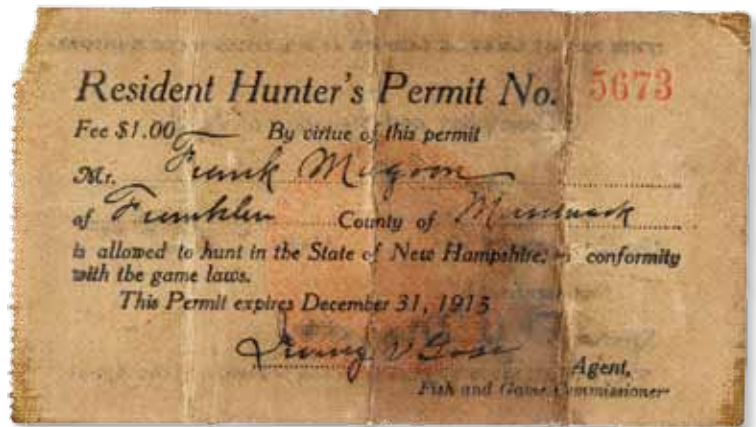 Resident Hunter's Permit No. 5673
Fee $1.00 By virtue of this permit
Mr. Frank Magoon
of Franklin County of Merrimack
is allowed to hunt in the State of New Hampshire, in conformity
with the game laws.
This Permit expires December 31, 1915
Irving
Agent,
Fish and Game Commissioner